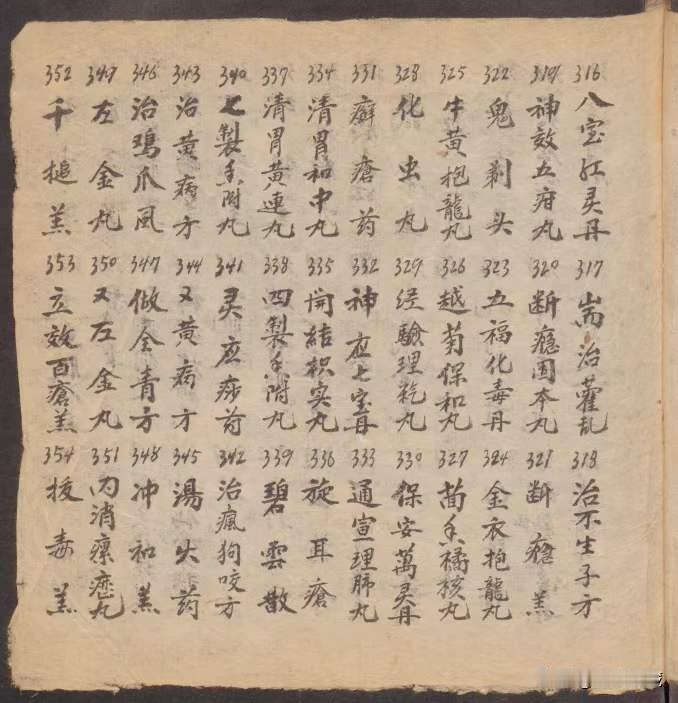 316 八宝红灵丹 317 耑治藿乱 318 治不生子方
319 神效五疳丸 320 断瘾固本丸 321 断瘾羔
322 鬼剃头 323 五福化毒丹 324 金衣抱龍丸
325 牛黄抱龍丸 326 越菊保和丸 327 茴香橘核丸
328 化虫丸 329 经驗理丸 330 保安萬灵丹
331 癣瘡药 332 神应七宝丹 333 通宣理肺丸
334 清胃和中丸 335 開结枳实丸 336 旋耳瘡
337 清胃黄連丸 338 四製香附丸 339 碧雲散
340 七製香附丸 341 灵应痧药 342 治瘋狗咬方
343 治黄病方 344 又黄病方 345 湯火药
346 治鸡爪風 347 做全青方 348 冲和羔
349 左金丸 350 又左金丸 351 内消瘰癧丸
352 千槌羔 353 立效百瘡羔 354 拔毒羔